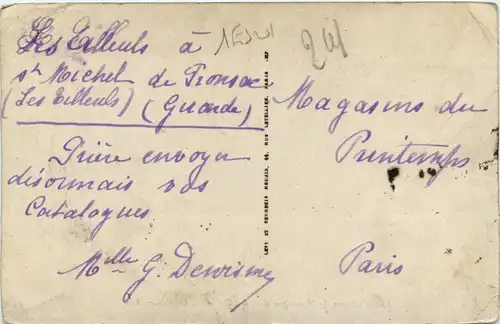 Les Tilleuls à
St Michel de Fronsac
(Les Tilleuls) (Gironde)
Prière envoyer
désormais vos
Catalogues
Mlle G. Dewisme
LEVY ET NEURDEIN REUNIS, 44, RUE LETELLIER, PARIS - IMP
Magasins du
Printemps
Paris